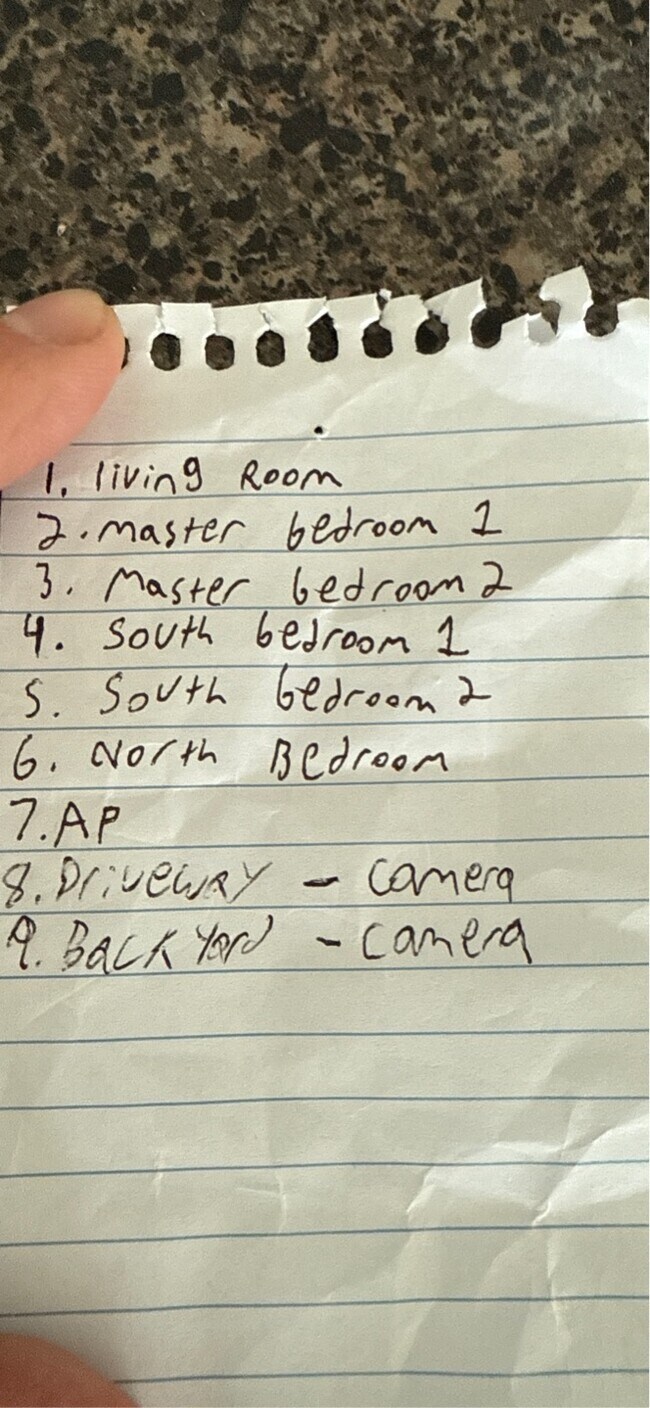 1. living Room
2. master bedroom 1
3. Master bedroom 2
4. South bedroom 1
5. South bedroom 2
6. North Bedroom
7. AP
8. Driveway - camera
9. Back Yard - camera